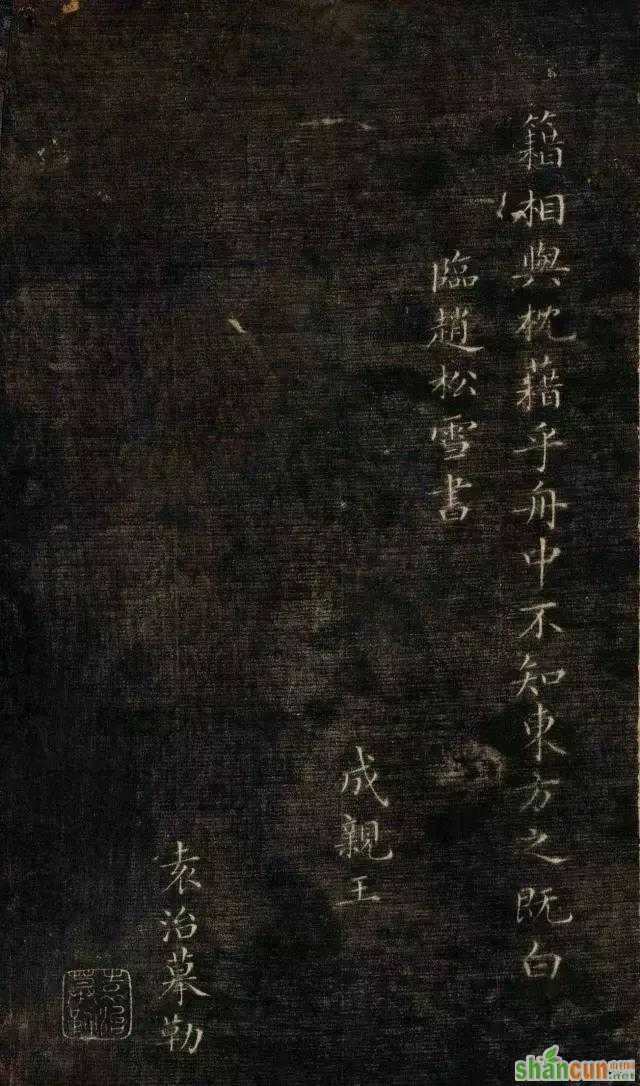 籍相與枕藉乎舟中不知東方之既白
臨趙松雪書
成親王
袁治摹勒
shancun